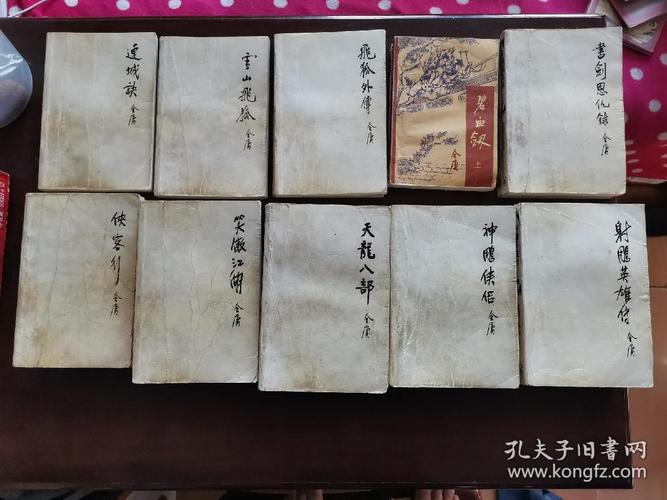 連城訣
金庸
雪山飛狐
金庸
飛狐外傳
金庸
碧血劍
金庸
上
書劍恩仇録
金庸
俠客行
金庸
笑傲江湖
金庸
天龍八部
金庸
神鵰侠侣
金庸
射鵰英雄传
金庸
孔夫子旧书网
www.kongfz.com